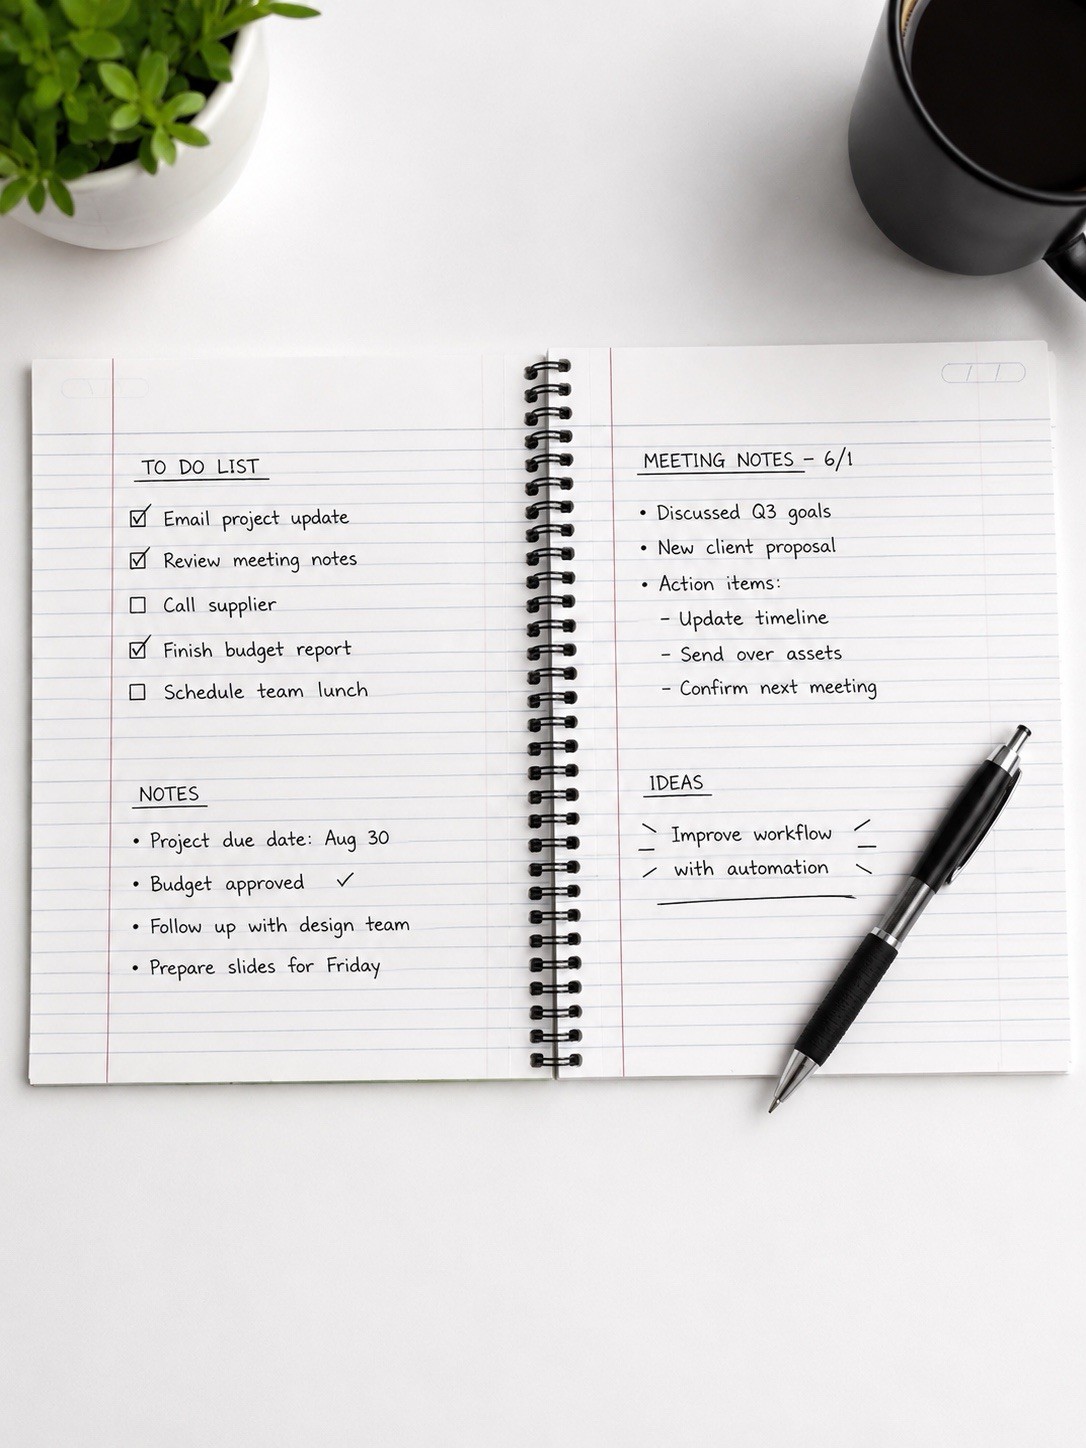 TO DO LIST
☑ Email project update
☑ Review meeting notes
☐ Call supplier
☑ Finish budget report
☐ Schedule team lunch
NOTES
• Project due date: Aug 30
• Budget approved ✓
• Follow up with design team
• Prepare slides for Friday
MEETING NOTES – 6/1
• Discussed Q3 goals
• New client proposal
• Action items:
– Update timeline
– Send over assets
– Confirm next meeting
IDEAS
Improve workflow
with automation